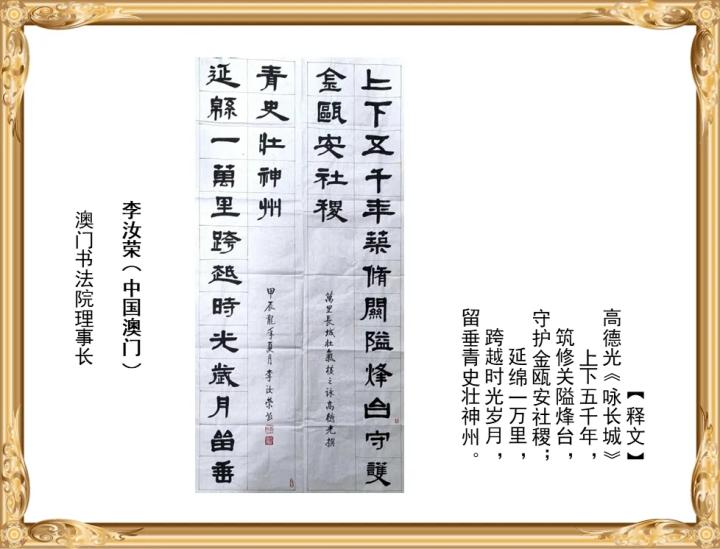 【释文】
高德光《咏长城》
上下五千年，
筑修关隘烽台，
守护金瓯安社稷；
延绵一万里，
跨越时光岁月，
留垂青史壮神州。
上下五千年築脩關隘烽台守護
金甌安社稷
萬里長城壯氣之詠高德光撰
延緜一萬里跨越時光歲月留垂
青史壯神州
甲辰龍年夏月李汝荣
李汝荣（中国澳门）
澳门书法院理事长